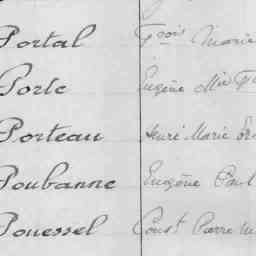 Portal Fçois Marie
Porte Eugène Mie
Porteau Henri Marie
Poubanne Eugène Paul
Pouessel Const Pierre M